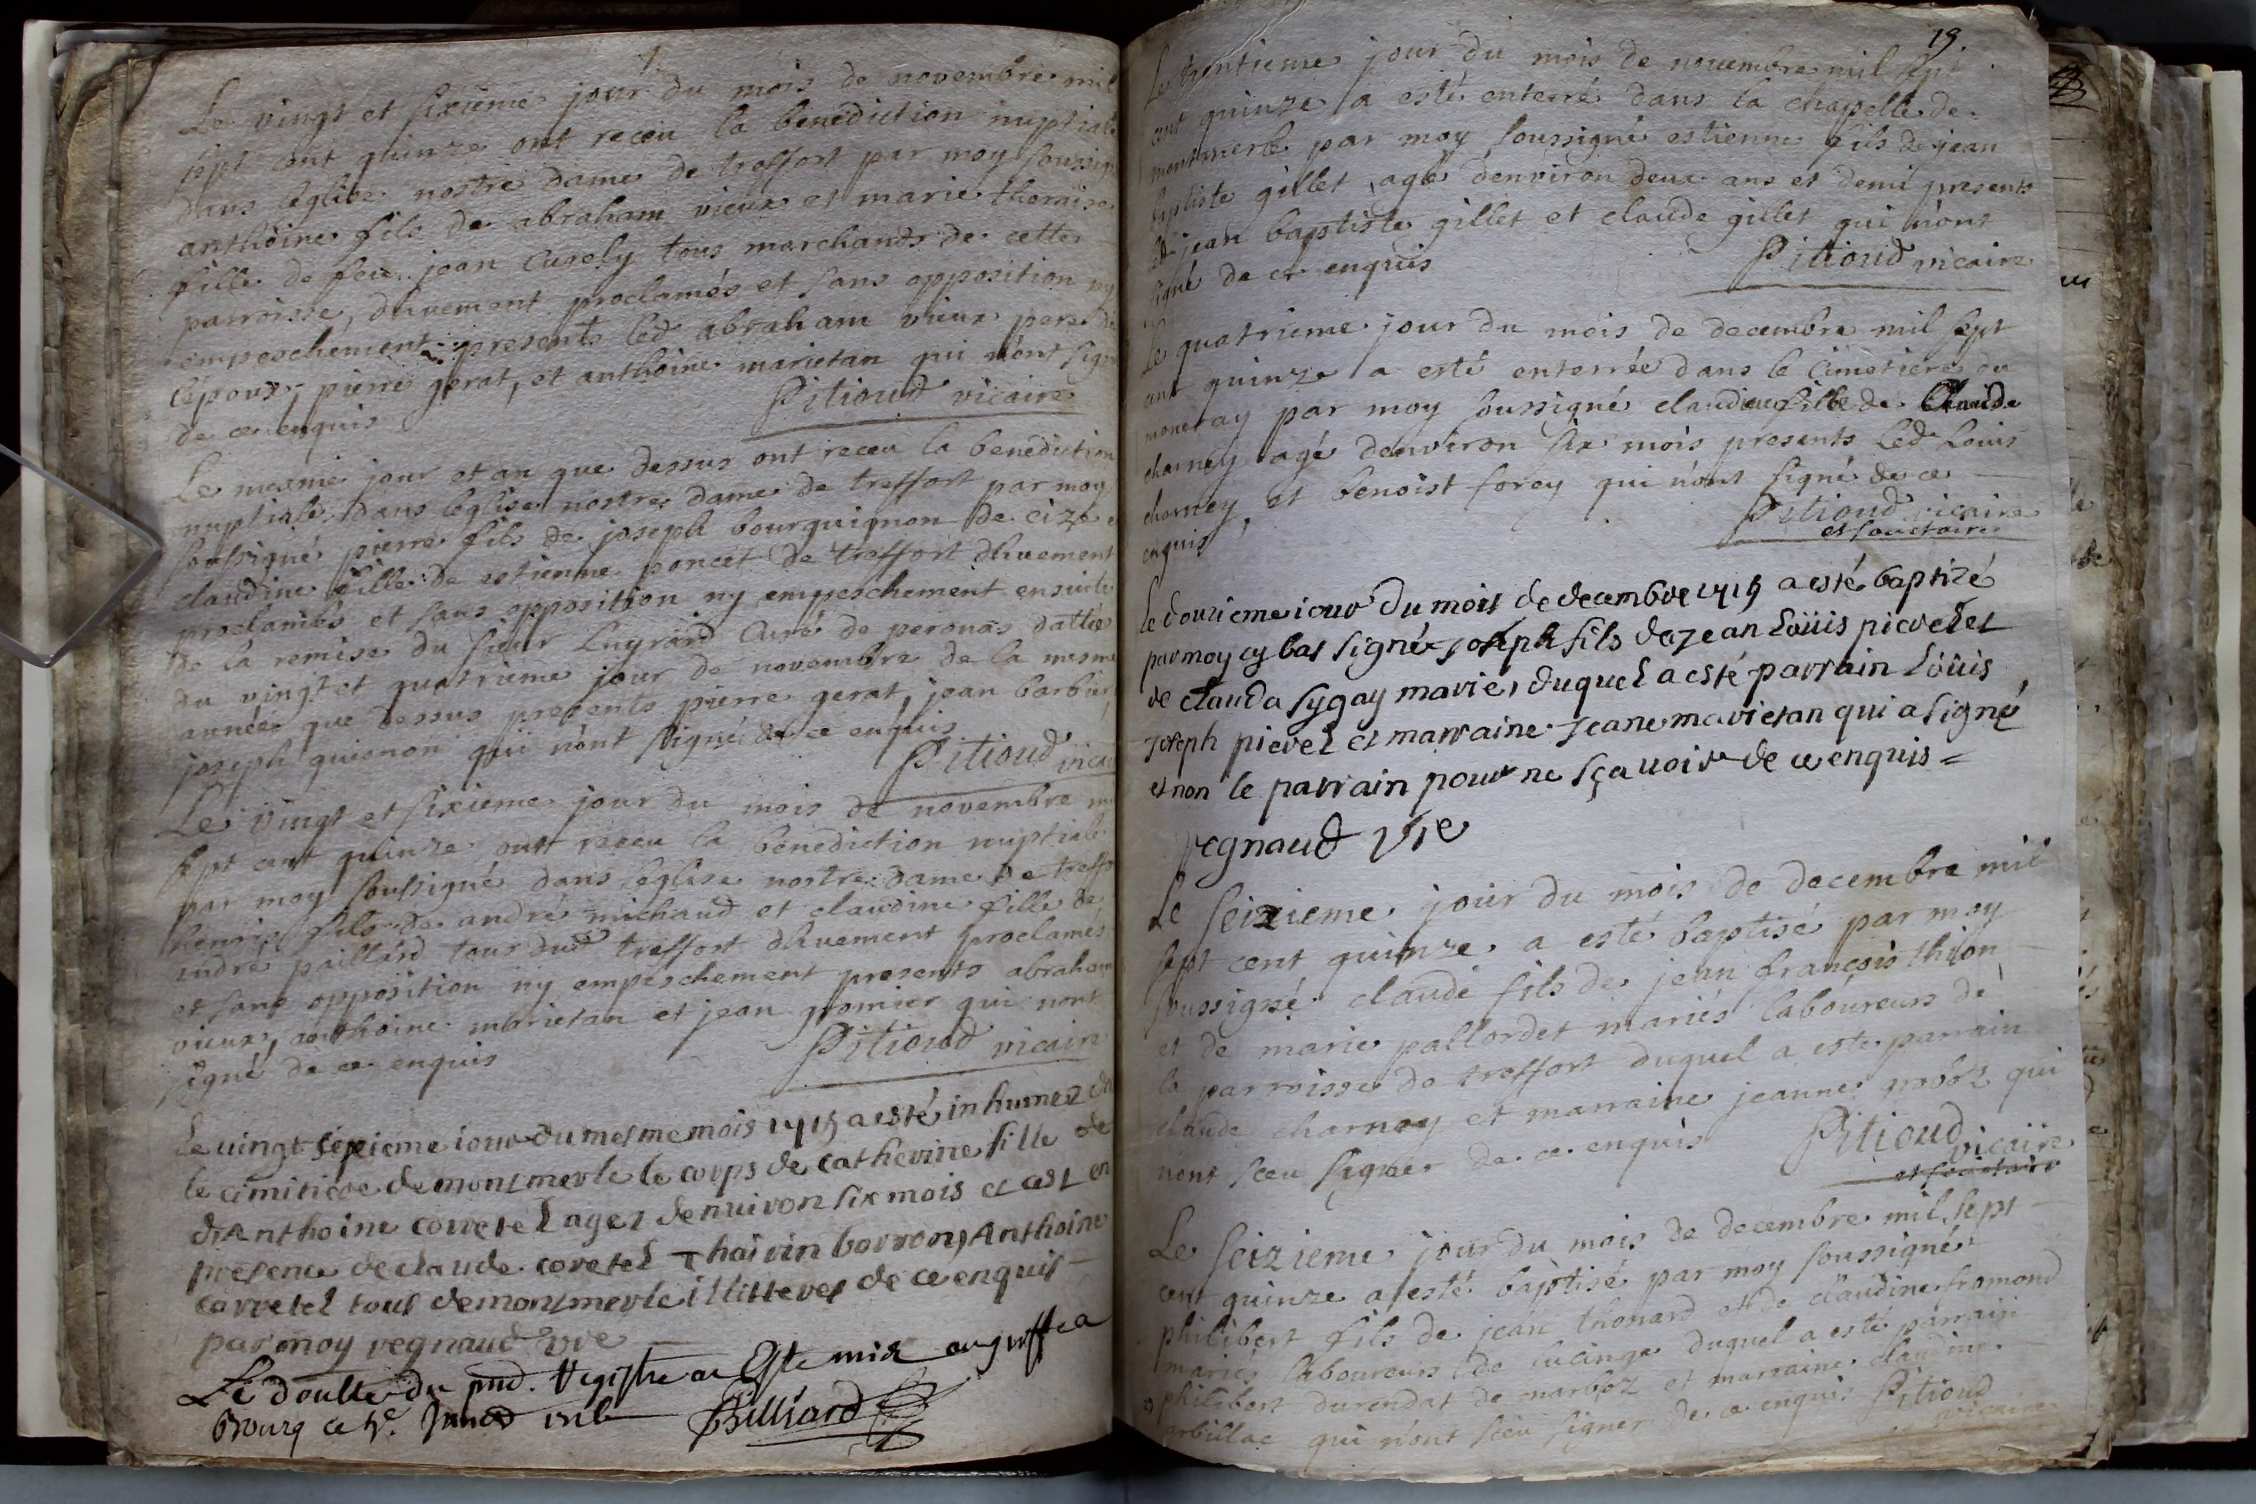 Le vingt et sixieme jour du mois de novembre mil
sept cent quinze ont receu la benediction nuptiale
dans leglise nostre dame de treffort par moy soussigné
anthoine fils de abraham vieux et marie thoraise
fille de feu jean Cusely tous marchands de cette
parroisse, düvement proclamés et sans opposition ny
empeschement presents led abraham vieux pere de
lépoux, pierre gerat, et anthoine marietan qui n'ont signé
de ce enquis Pitioud vicaire
Le mesme jour et an que dessus ont receu la benediction
nuptiale dans leglise nostre dame de treffort par moy
soussigné pierre fils de joseph bourguignon de cize
claudine fille de estienne poncet de treffort düvement
proclamés et sans opposition ny empeschement ensuite
de la remise du sieur Lugrand Curé de peronas dattée
du vingt et quatrieme jour de novembre de la mesme
année que dessus presents pierre gerat, jean barbier,
joseph guionon qui n'ont signé de ce enquis
Pitioud vicaire
Le vingt et sixieme jour du mois de novembre mil
sept cent quinze ont receu la benediction nuptiale
par moy soussigné dans leglise nostre dame de treffort
henris fils de andré michaud et claudine fille de
andré paillard tous dud treffort düvement proclamés
et sans opposition ny empeschement presents abraham
vieux, anthoine marietan et jean gromier qui nont
signé de ce enquis Pitioud vicaire
Le vingt sixieme iour du mesme mois 1715 a esté inhumez
le cimitiere de montmerle le corps de catherine fille de
dAnthoine corretel agez denuiron six mois et cest en
presence de claude coretel Thaivin borron, Anthoine
carretel tous de montmerle illitteres de ce enquis
par moy regnaud vre
Le double du pnt. Registre a Esté mis au greffe a
Bourg ce Billiard
19.
Le trentieme jour du mois de novembre mil sept
cent quinze a esté enterré dans la chapelle de
montmerle par moy soussigné estienne fils de jean
baptiste gillet agé denviron deux ans et demi presents
led jean baptiste gillet et claude gillet qui n'ont
signé de ce enquis Pitioud vicaire
Le quatrieme jour du mois de decembre mil sept
cent quinze a esté enterrée dans le Cimetiere du
monetay par moy soussigné claudine fille de Claude
charney agé denviron six mois presents led Louis
charney, et benoist forey qui n'ont signé de ce
enquis Pitioud vicaire
et
le douzieme iour du mois de decembre 1715 a esté baptizé
par moy cy bas signé joseph fils de jean loüis pievel et
de clauda sygay mariés duquel a esté parrain loüis
joseph pievel et marraine jeane marietan qui a signé
et non le parrain pour ne sçauoir de ce enquis =
regnaud vre
Le seizieme jour du mois de decembre mil
sept cent quinze a esté baptisé par moy
soussigné claude fils de jean françois thilon
et de marie pallordet mariés laboureurs de
la parroisse de treffort duquel a esté parrain
claude charney et marraine jeanne qui
nont sceu signer de ce enquis Pitioud
vicaire
et
Le seizieme jour du mois de decembre mil sept
cent quinze a esté baptisé par moy soussigné
philibert fils de jean thonard et de claudine fromond
mariés laboureurs de cucinge duquel a esté parrain
philibert durendat de marboz et marraine claudine
qui n'ont sceu signer de ce enquis Pitioud
vicaire